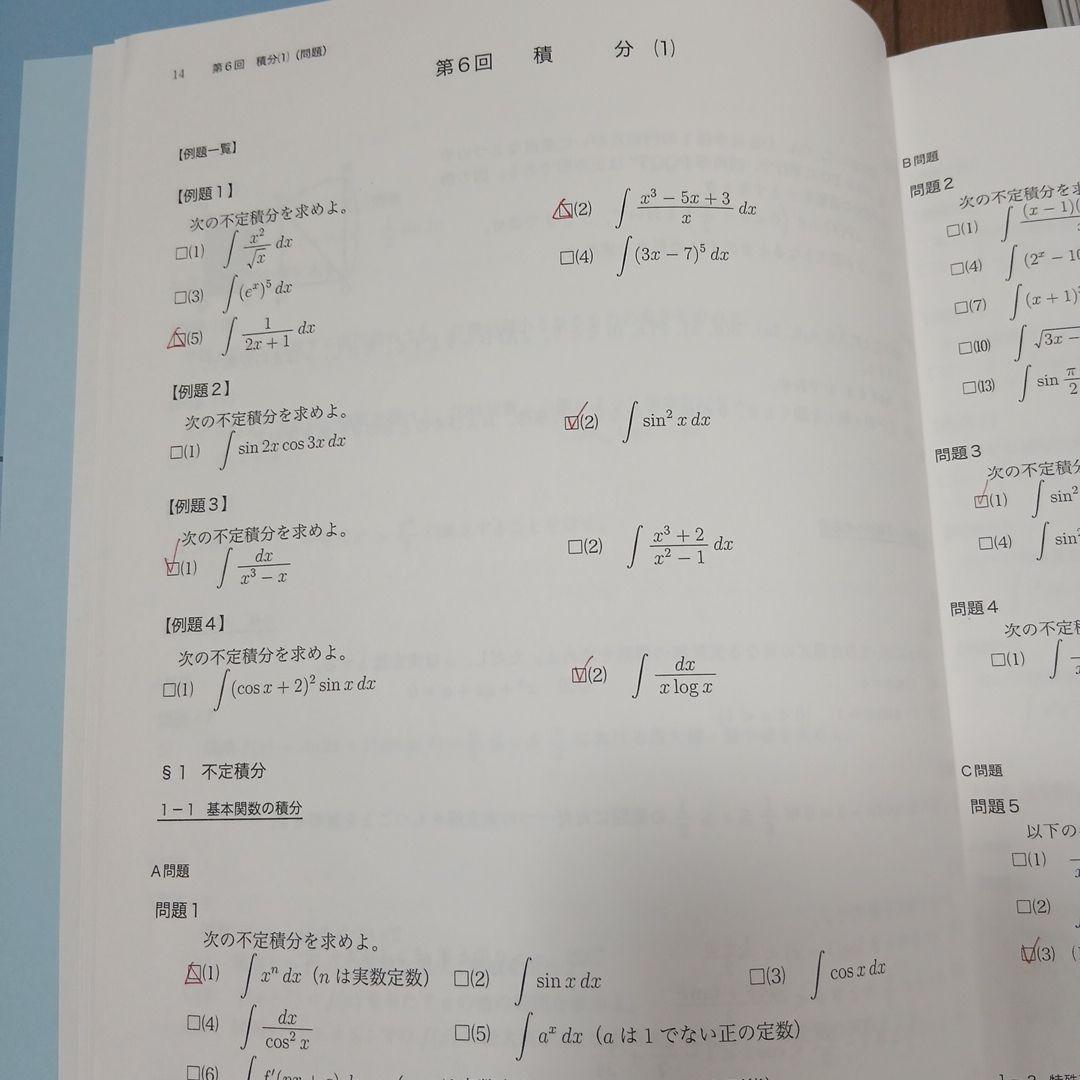 14 第6回 積分(1)(問題)
第6回 積 分 (1)
【例題一覧】
【例題1】
次の不定積分を求めよ。
□(1) ∫ x²/√x dx
□(2) ∫ (x³ − 5x + 3)/x dx
□(3) ∫ (eˣ)⁵ dx
□(4) ∫ (3x − 7)⁵ dx
□(5) ∫ 1/(2x + 1) dx
【例題2】
次の不定積分を求めよ。
□(1) ∫ sin 2x cos 3x dx
□(2) ∫ sin² x dx
【例題3】
次の不定積分を求めよ。
□(1) ∫ dx/(x³ − x)
□(2) ∫ (x³ + 2)/(x² − 1) dx
【例題4】
次の不定積分を求めよ。
□(1) ∫ (cos x + 2)² sin x dx
□(2) ∫ dx/(x log x)
§1 不定積分
1−1 基本関数の積分
A問題
問題1
次の不定積分を求めよ。
□(1) ∫ xⁿ dx (n は実数定数) □(2) ∫ sin x dx □(3) ∫ cos x dx
□(4) ∫ dx/cos² x □(5) ∫ aˣ dx (a は1でない正の定数)
□(6)
B問題
問題2
次の不定積分を求
□(1) ∫ (x − 1)(
□(4) ∫ (2ˣ − 10
□(7) ∫ (x + 1)
□(10) ∫ √3x −
□(13) ∫ sin π/2
問題3
次の不定積分
□(1) ∫ sin²
□(4) ∫ sin
問題4
次の不定積
□(1) ∫
C問題
問題5
以下の
□(1)
□(2)
□(3) (